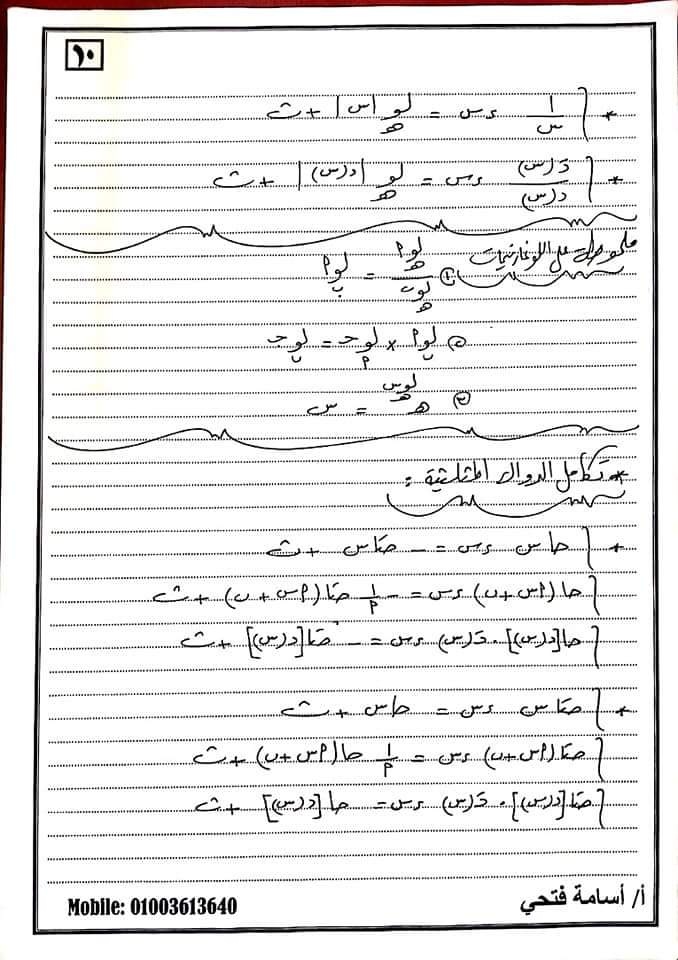 ١٠
* ∫ ١/س ءس = لو_هـ |س| + ث
* ∫ د َ(س)/د(س) ءس = لو_هـ |د(س)| + ث
ملحوظات على اللوغاريتمات
① لو_هـ م / لو_هـ ب = لو_ب م
② لو_ب م × لو_م جـ = لو_ب جـ
③ هـ^(لو_هـ س) = س
* تكامل الدوال المثلثية :
* ∫ حاس ءس = - حتاس + ث
∫ حا(مس + ب) ءس = - ١/م حتا(مس + ب) + ث
∫ حا[د(س)] . د َ(س) ءس = - حتا[د(س)] + ث
* ∫ حتاس ءس = حاس + ث
∫ حتا(مس + ب) ءس = ١/م حا(مس + ب) + ث
∫ حتا[د(س)] . د َ(س) ءس = حا[د(س)] + ث
أ/ أسامة فتحي
Mobile: 01003613640